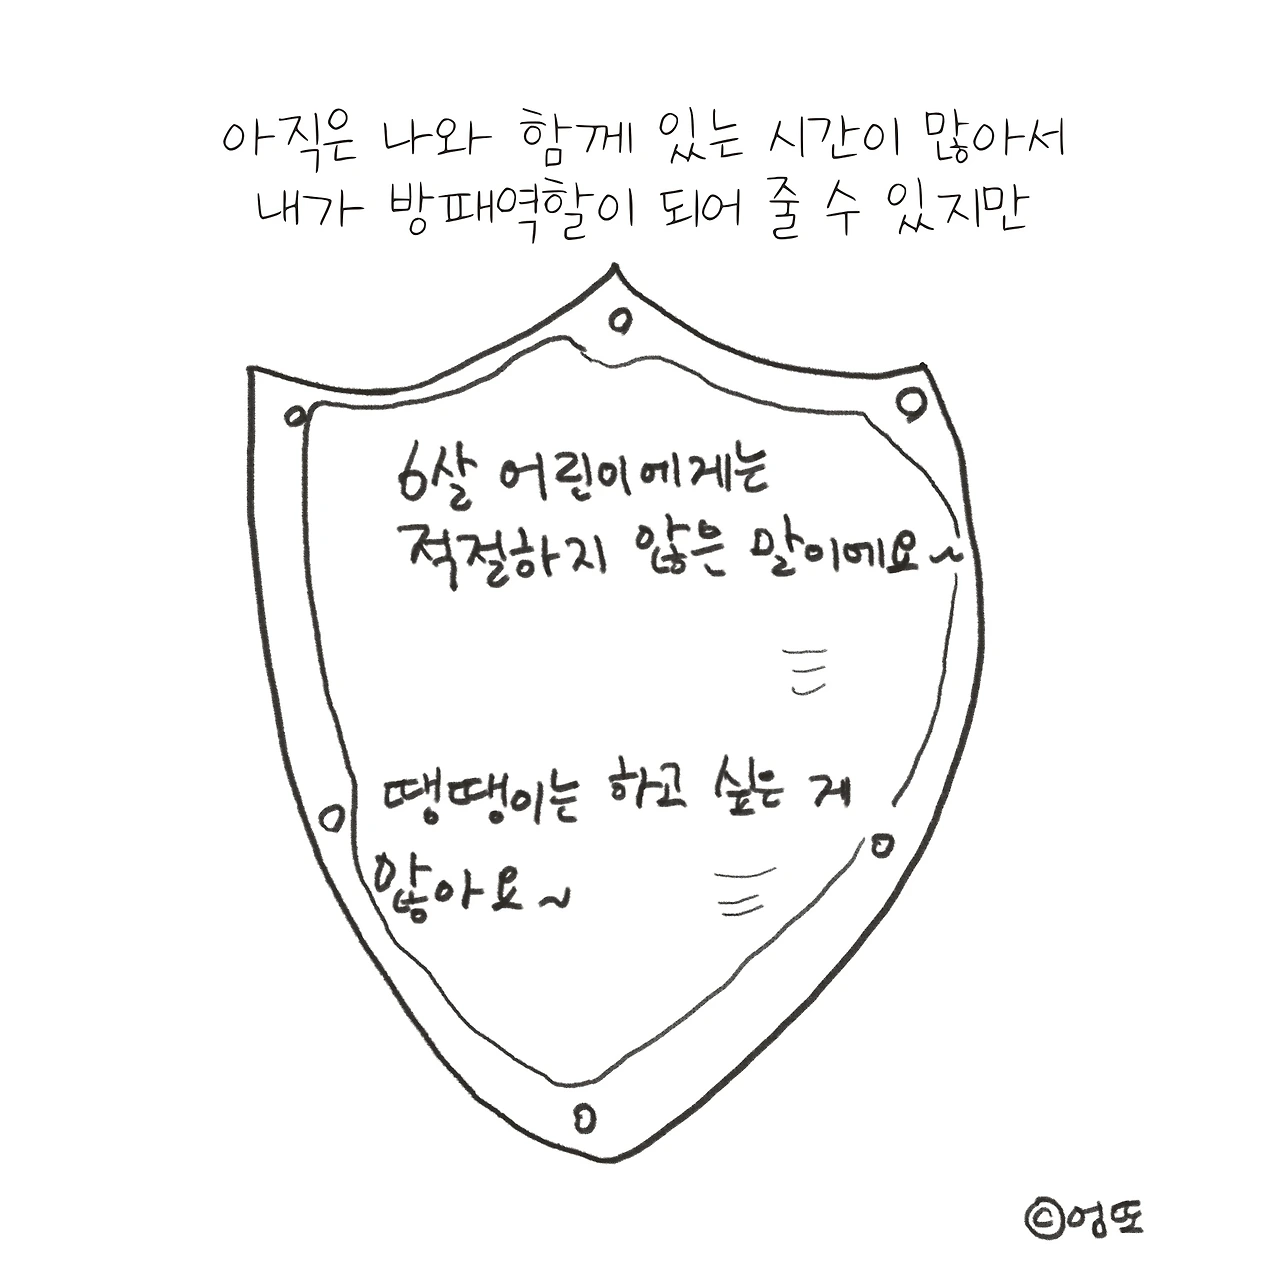 아직은 나와 함께 있는 시간이 많아서
내가 방패역할이 되어 줄 수 있지만
6살 어린이에게는
적절하지 않은 말이에요~
땡땡이는 하고 싶은 게
많아요~
©엉또